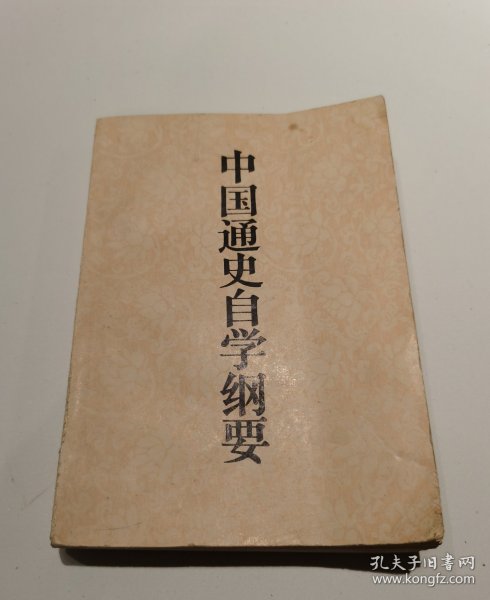 中国通史自学纲要
孔夫子旧书网
www.kongfz.com